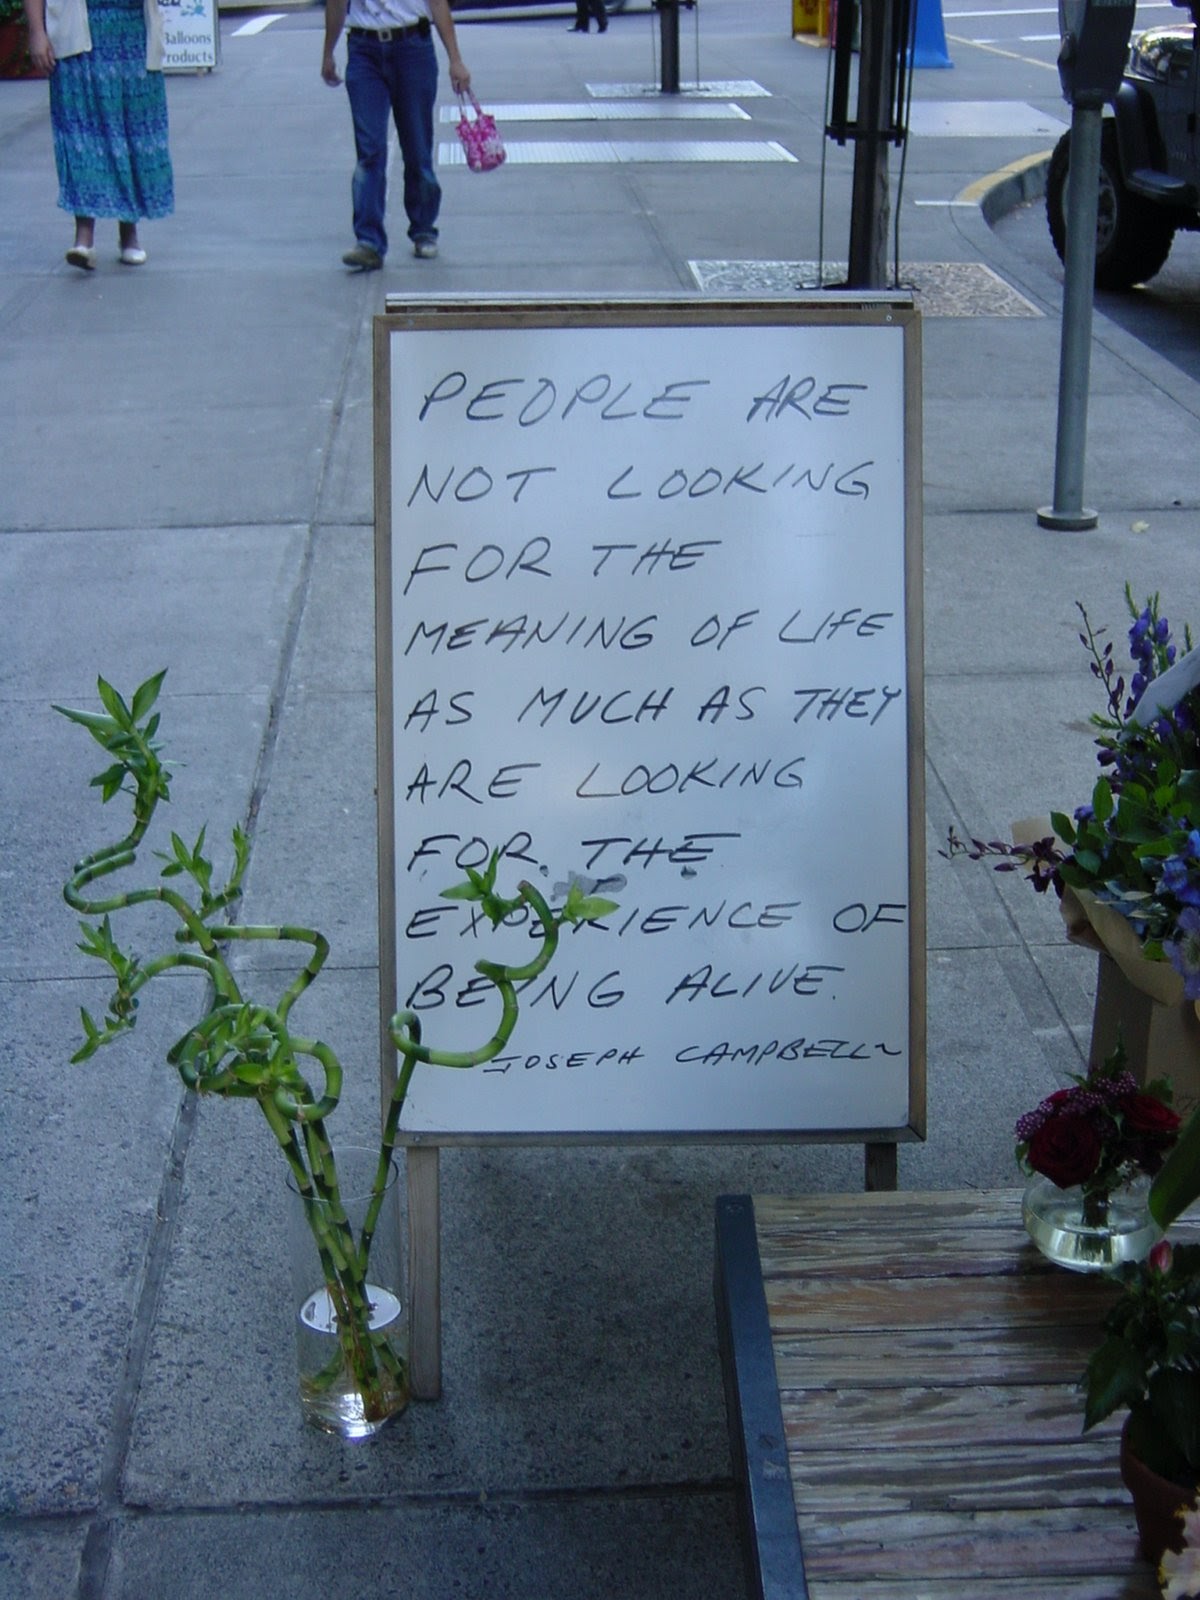 Balloons
Products
PEOPLE ARE
NOT LOOKING
FOR THE
MEANING OF LIFE
AS MUCH AS THEY
ARE LOOKING
FOR THE
EXPERIENCE OF
BEING ALIVE.
JOSEPH CAMPBELL